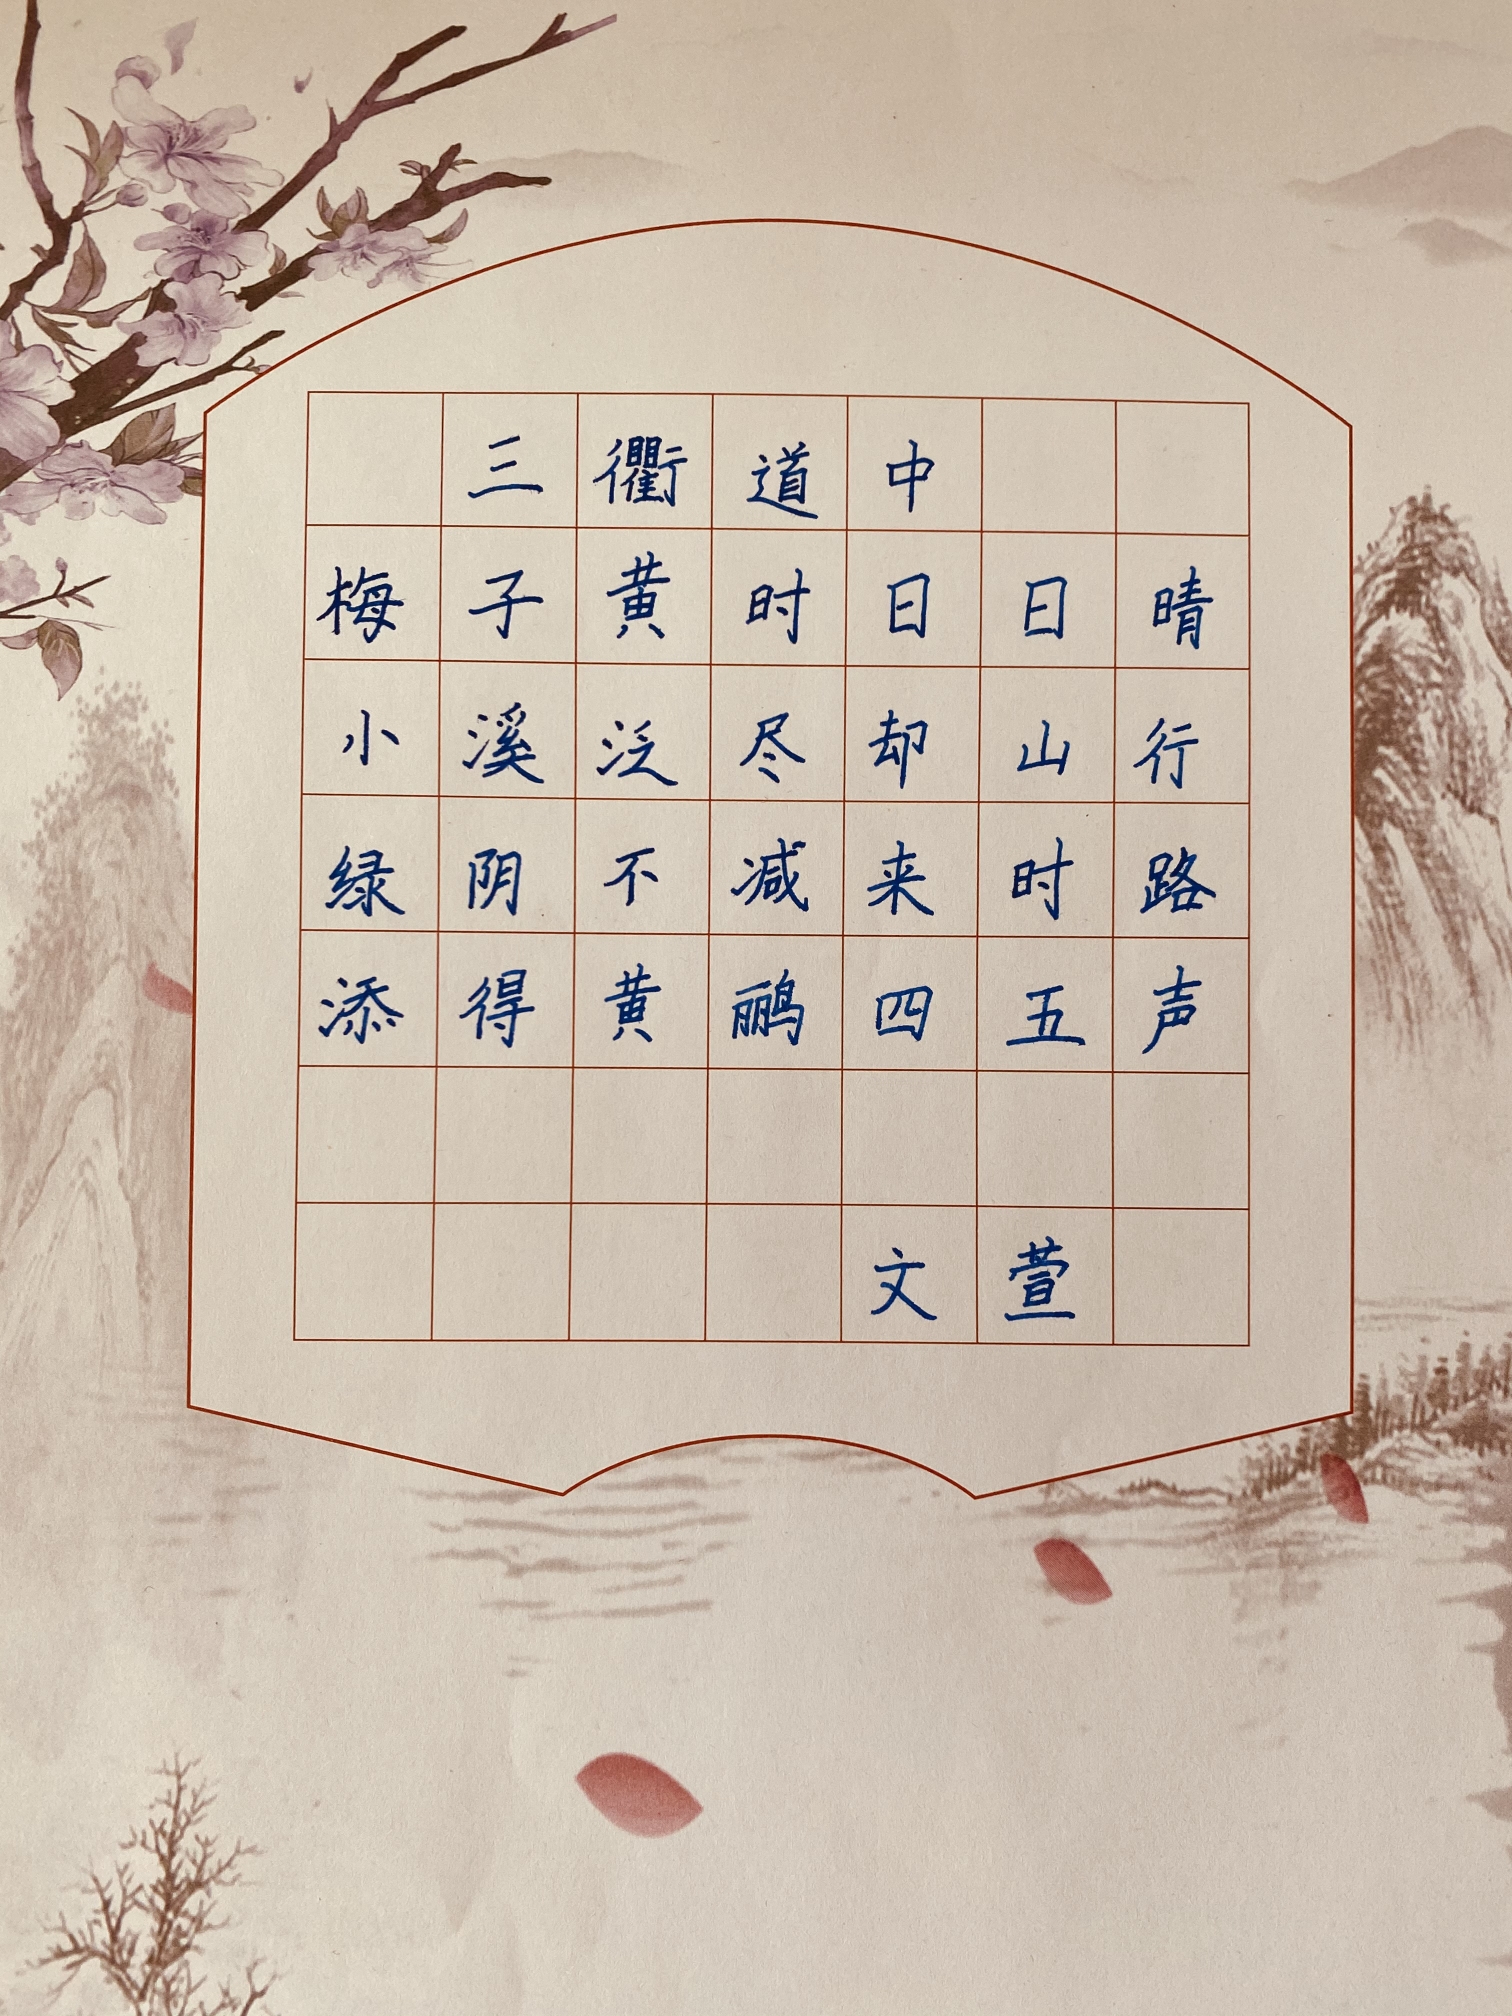 三衢道中
梅子黄时日日晴
小溪泛尽却山行
绿阴不减来时路
添得黄鹂四五声
文萱